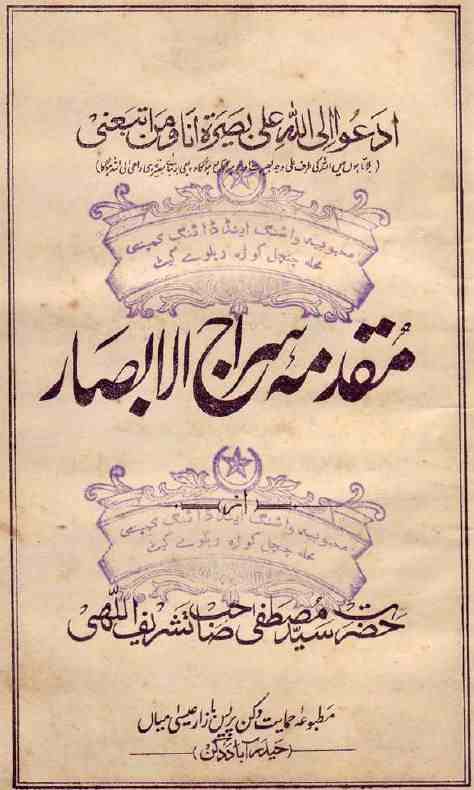 ادعوا الی اللہ علی بصیرۃ انا ومن اتبعنی
(بلاتا ہوں میں اللہ کی طرف علی وجہ بصیرت
محبوبیہ واشنگ اینڈ ڈائنگ کمپنی
محلہ چنچل گوڑہ ریلوے گیٹ
مقدمہ سراج الابصار
از
محبوبیہ واشنگ اینڈ ڈائنگ کمپنی
محلہ چنچل گوڑہ ریلوے گیٹ
حضرت سید مصطفیٰ صاحب تشریف اللہی
مطبوعہ حمایت دکن پریس بازار عیسیٰ میاں
(حیدرآباد دکن)